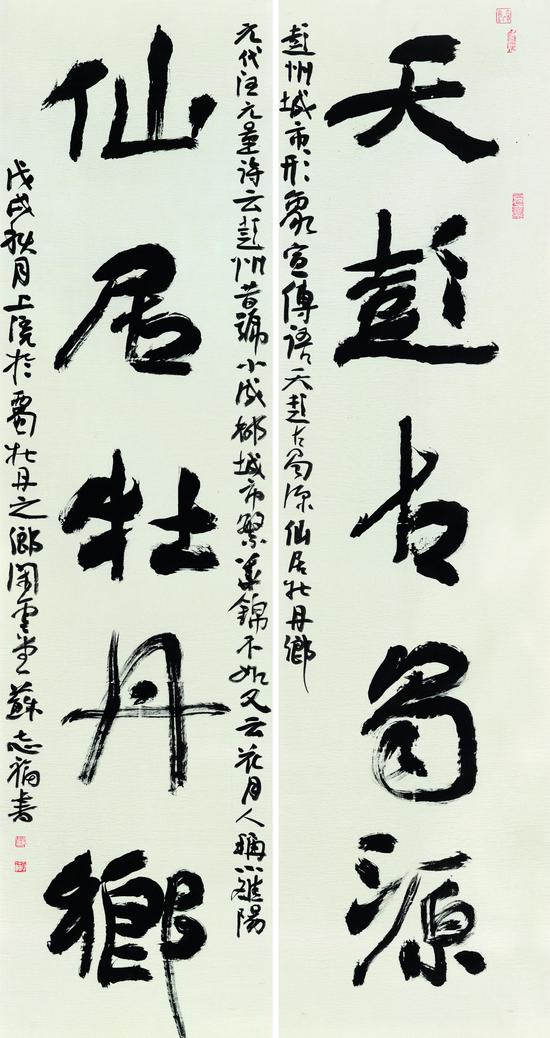 天彭古蜀源
彭州城市形象宣傳語天彭古蜀源仙居牡丹鄉
元代汪元量詩云彭州昔號小成都城市繁華錦不如又云花月人稱小雒陽
仙居牡丹鄉
戊戌秋月上浣於蜀牡丹之鄉閑雲堂蘇志福書